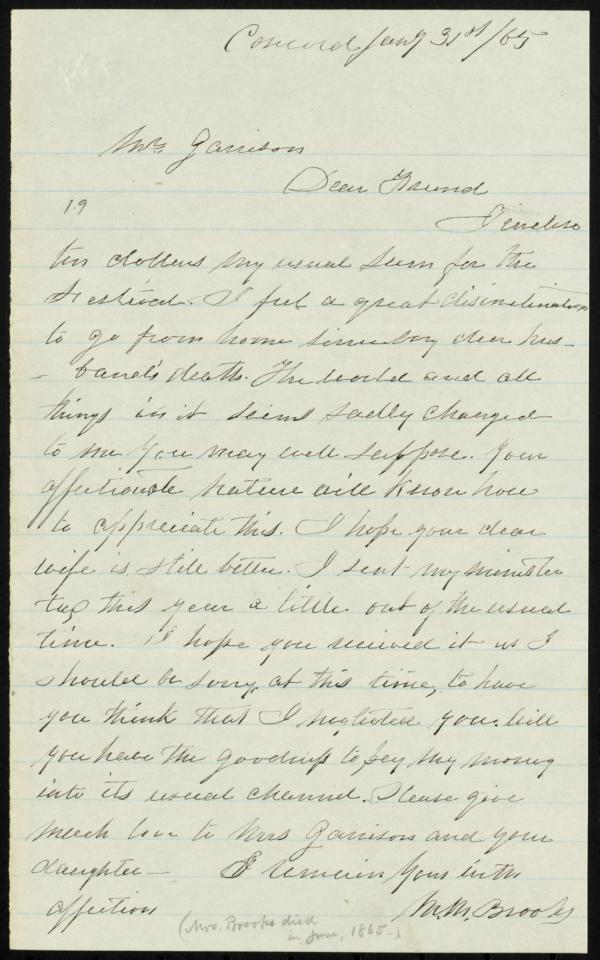 Concord Jany 31st/65
Mr. Garrison
Dear Friend
19
I enclose
ten dollars my usual sum for the
Festival. I feel a great disinclination
to go from home since my dear hus-
- band's death. The world and all
things in it seems sadly changed
to me you may well suppose. Your
affectionate nature will know how
to appreciate this. I hope your dear
wife is still better. I sent my minister
this year a little out of the usual
time. I hope you received it as I
should be sorry, at this time, to have
you think that I neglected you. Will
you have the goodness to pay my money
into its usual channel. Please give
much love to Mrs Garrison and your
daughter— I remain yours with
affection
M. M. Brooks
(Mrs. Brooks died
in June, 1865.)